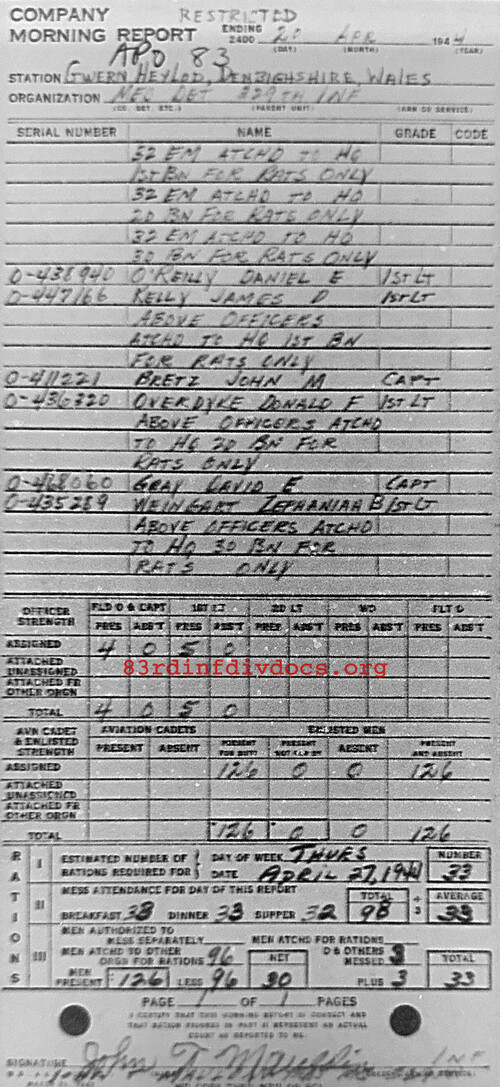 COMPANY
RESTRICTED
MORNING REPORT ENDING 2400 20 APR 1944
(DAY) (MONTH) (YEAR)
APO 83
STATION GWERN HEYLOD, DENBIGHSHIRE, WALES
ORGANIZATION MED DET 329TH INF
(CO. DET. ETC.) (PARENT UNIT) (ARM OR SERVICE)
SERIAL NUMBER NAME GRADE CODE
32 EM ATCHD TO HQ
1ST BN FOR RATS ONLY
32 EM ATCHD TO HQ
2D BN FOR RATS ONLY
32 EM ATCHD TO HQ
3D BN FOR RATS ONLY
O-438940 O'REILLY DANIEL E 1ST LT
O-447166 KELLY JAMES D 1ST LT
ABOVE OFFICERS
ATCHD TO HQ 1ST BN
FOR RATS ONLY
O-411221 BRETZ JOHN M CAPT
O-436320 OVERDYKE DONALD F 1ST LT
ABOVE OFFICERS ATCHD
TO HQ 2D BN FOR
RATS ONLY
O-468060 GRAY DAVID E CAPT
O-435289 WEINGART ZEPHANIAH B 1ST LT
ABOVE OFFICERS ATCHD
TO HQ 3D BN FOR
RATS ONLY
OFFICER STRENGTH FLD O & CAPT 1ST LT 2D LT WO FLT O
PRES ABS'T PRES ABS'T PRES ABS'T PRES ABS'T PRES ABS'T
ASSIGNED 4 0 5 0
ATTACHED UNASSIGNED
83rdinfdivdocs.org
ATTACHED FR OTHER ORGN
TOTAL 4 0 5 0
AVN CADET & ENLISTED STRENGTH AVIATION CADETS ENLISTED MEN
PRESENT ABSENT PRESENT FOR DUTY PRESENT NOT FOR DY ABSENT PRESENT AND ABSENT
ASSIGNED 126 0 0 126
ATTACHED UNASSIGNED
ATTACHED FR OTHER ORGN
TOTAL 126 0 0 126
RATIONS
I ESTIMATED NUMBER OF RATIONS REQUIRED FOR DAY OF WEEK THURS NUMBER
DATE APRIL 27, 1944 33
II MESS ATTENDANCE FOR DAY OF THIS REPORT TOTAL ÷ 3 AVERAGE
BREAKFAST 33 DINNER 33 SUPPER 32 98 33
III MEN AUTHORIZED TO MESS SEPARATELY MEN ATCHD FOR RATIONS
MEN ATCHD TO OTHER ORGN FOR RATIONS 96 NET O & OTHERS MESSED 3 TOTAL
MEN PRESENT 126 LESS 96 30 PLUS 3 33
PAGE 1 OF 1 PAGES
I CERTIFY THAT THIS MORNING REPORT IS CORRECT AND
THAT RATION FIGURES IN PART II REPRESENT AN ACTUAL
COUNT AS REPORTED TO ME.
SIGNATURE John T. INF